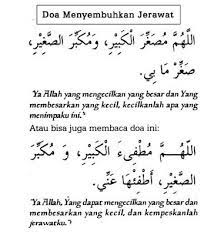 Doa Menyembuhkan Jerawat
اَللّٰهُمَّ مُصَغِّرَ الْكَبِيْرِ، وَمُكَبِّرَ الصَّغِيْرِ،
صَغِّرْ مَا بِيْ.
"Ya Allah yang mengecilkan yang besar dan Yang
membesarkan yang kecil, kecilkanlah apa yang
menimpaku ini."
Atau bisa juga membaca doa ini:
اَللّٰهُمَّ مُطْفِىءَ الْكَبِيْرِ، وَ مُكَبِّرَ
الصَّغِيْرِ، أَطْفِئْهَا عَنِّيْ.
"Ya Allah, Yang dapat mengecilkan yang besar dan
membesarkan yang kecil, dan kempeskanlah
jerawatku."